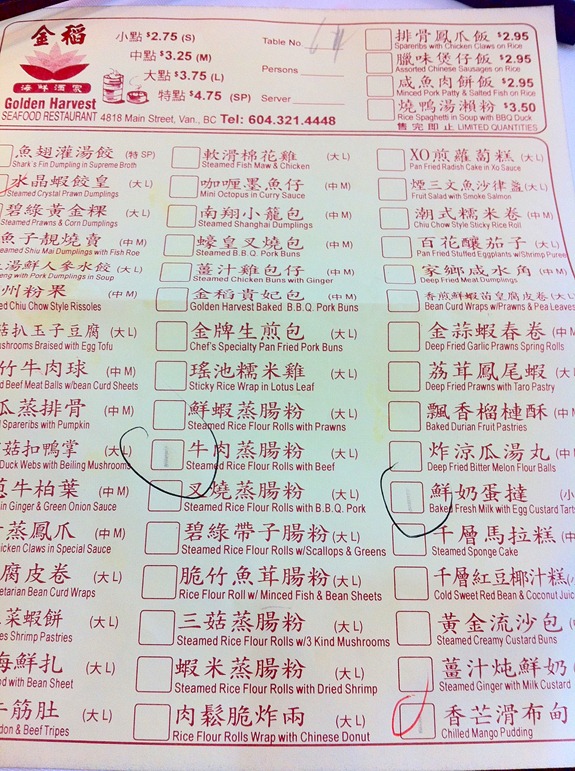 金稻
海鮮酒家
Golden Harvest
SEAFOOD RESTAURANT 4818 Main Street, Van., BC Tel: 604.321.4448
小點 $2.75 (S)
中點 $3.25 (M)
大點 $3.75 (L)
特點 $4.75 (SP)
Table No.
Persons
Server
排骨鳳爪飯 $2.95
Spareribs with Chicken Claws on Rice
臘味煲仔飯 $2.95
Assorted Chinese Sausages on Rice
咸魚肉餅飯 $2.95
Minced Pork Patty & Salted Fish on Rice
燒鴨湯瀨粉 $3.50
Rice Spaghetti in Soup with BBQ Duck
售完即止 LIMITED QUANTITIES
魚翅灌湯餃 (特SP)
Shark's Fin Dumpling in Supreme Broth
水晶蝦餃皇 (大L)
Steamed Crystal Prawn Dumplings
碧綠黃金粿 (大L)
Steamed Prawns & Corn Dumplings
魚子靚燒賣 (中M)
Steamed Shiu Mai Dumplings with Fish Roe
湯鮮人參水餃 (大L)
seng with Pork Dumplings in Soup
州粉果 (中M)
ed Chiu Chow Style Rissoles
菇扒玉子豆腐 (大L)
ushrooms Braised with Egg Tofu
竹牛肉球 (中M)
d Beef Meat Balls w/bean Curd Sheets
瓜蒸排骨 (中M)
Spareribs with Pumpkin
菇扣鴨掌 (大L)
Duck Webs with Beiling Mushrooms
蔥牛柏葉 (中M)
in Ginger & Green Onion Sauce
蒸鳳爪 (中M)
hicken Claws in Special Sauce
腐皮卷 (大L)
etarian Bean Curd Wraps
菜蝦餅 (大L)
es Shrimp Pastries
海鮮扎 (大L)
d with Bean Sheet
牛筋肚 (大L)
don & Beef Tripes
軟滑棉花雞 (大L)
Steamed Fish Maw & Chicken
咖喱墨魚仔 (中M)
Mini Octopus in Curry Sauce
南翔小籠包 (中M)
Steamed Shanghai Dumplings
蠔皇叉燒包 (中M)
Steamed B.B.Q. Pork Buns
薑汁雞包仔 (中M)
Steamed Chicken Buns with Ginger
金稻貴妃包 (中M)
Golden Harvest Baked B.B.Q. Pork Buns
金牌生煎包 (大L)
Chef's Specialty Pan Fried Pork Buns
瑤池糯米雞 (大L)
Sticky Rice Wrap in Lotus Leaf
鮮蝦蒸腸粉 (大L)
Steamed Rice Flour Rolls with Prawns
牛肉蒸腸粉 (大L)
Steamed Rice Flour Rolls with Beef
叉燒蒸腸粉 (大L)
Steamed Rice Flour Rolls with B.B.Q. Pork
碧綠帶子腸粉 (大L)
Steamed Rice Flour Rolls w/Scallops & Greens
脆竹魚茸腸粉 (大L)
Rice Flour Roll w/ Minced Fish & Bean Sheets
三菇蒸腸粉 (大L)
Steamed Rice Flour Rolls w/3 Kind Mushrooms
蝦米蒸腸粉 (大L)
Steamed Rice Flour Rolls with Dried Shrimp
肉鬆脆炸兩 (大L)
Rice Flour Rolls Wrap with Chinese Donut
XO煎蘿蔔糕 (大L)
Pan Fried Radish Cake in Xo Sauce
煙三文魚沙律盞 (大L)
Fruit Salad with Smoke Salmon
潮式糯米卷 (中M)
Chiu Chow Style Sticky Rice Roll
百花釀茄子 (大L)
Pan Fried Stuffed Eggplants w/Shrimp Puree
家鄉咸水角 (中M)
Deep Fried Meat Dumplings
香煎鮮蝦苗皇腐皮卷 (大L)
Bean Curd Wraps w/Prawns & Pea Leaves
金蒜蝦春卷 (中M)
Deep Fried Garlic Prawns Spring Rolls
荔茸鳳尾蝦 (大L)
Deep Fried Prawns with Taro Pastry
飄香榴槤酥 (中M)
Baked Durian Fruit Pastries
炸涼瓜湯丸 (中M)
Deep Fried Bitter Melon Flour Balls
鮮奶蛋撻 (小
Baked Fresh Milk with Egg Custard Tarts
千層馬拉糕 (中
Steamed Sponge Cake
千層紅豆椰汁糕 (小
Cold Sweet Red Bean & Coconut Juic
黃金流沙包 (中
Steamed Creamy Custard Buns
薑汁炖鮮奶 (大
Steamed Ginger with Milk Custard
香芒滑布甸 (中
Chilled Mango Pudding